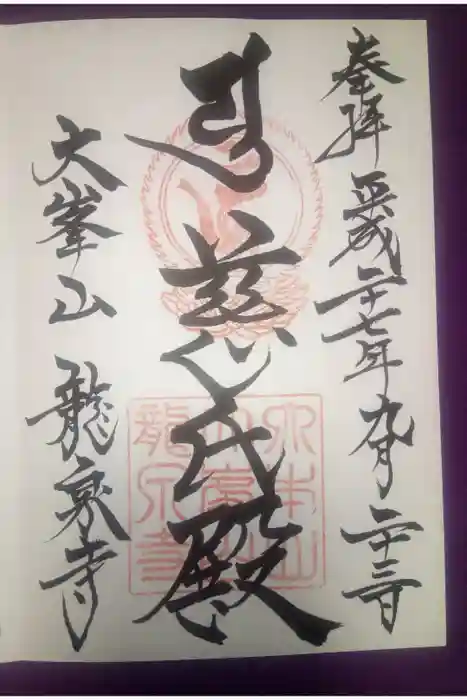 奉拝 平成二十七年九月二十三日
慈氏殿
大峯山 龍泉寺
大本山
龍泉寺